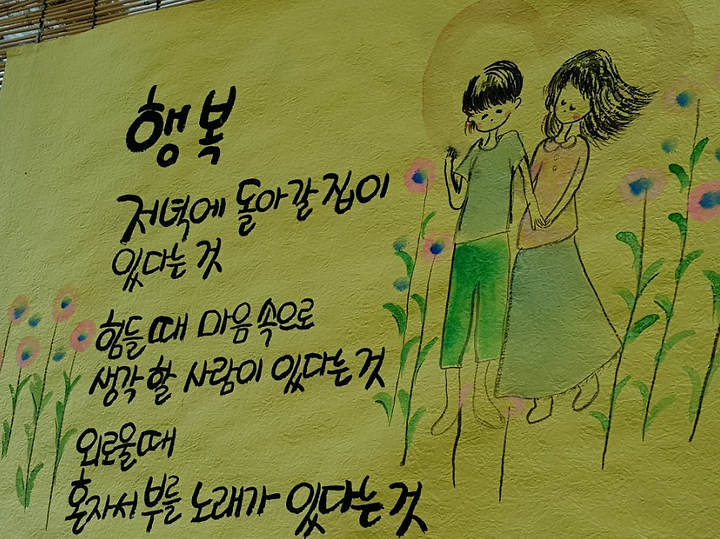 행복
저녁에 돌아갈 집이
있다는 것
힘들 때 마음 속으로
생각 할 사람이 있다는 것
외로울 때
혼자서 부를 노래가 있다는 것